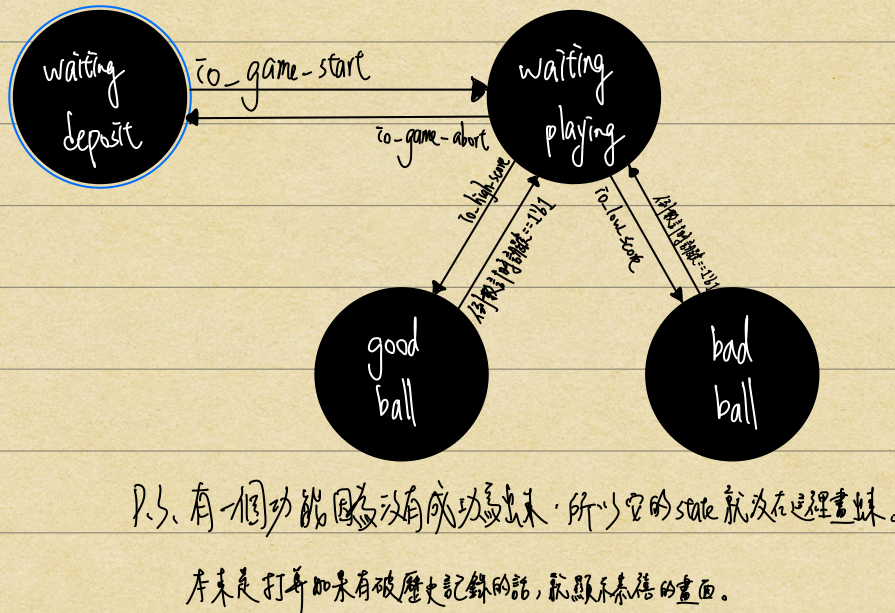 waiting
deposit
io_game-start
io_game-abort
waiting
playing
io_high_score
倒數計時計數==1'b1
io_low_score
倒數計時計數==1'b1
good
ball
bad
ball
P.S. 有一個功能因為沒有成功寫出來,所以它的state就沒在這裡畫出來。
本來是打算如果有破歷史記錄的話,就顯示恭禧的畫面。